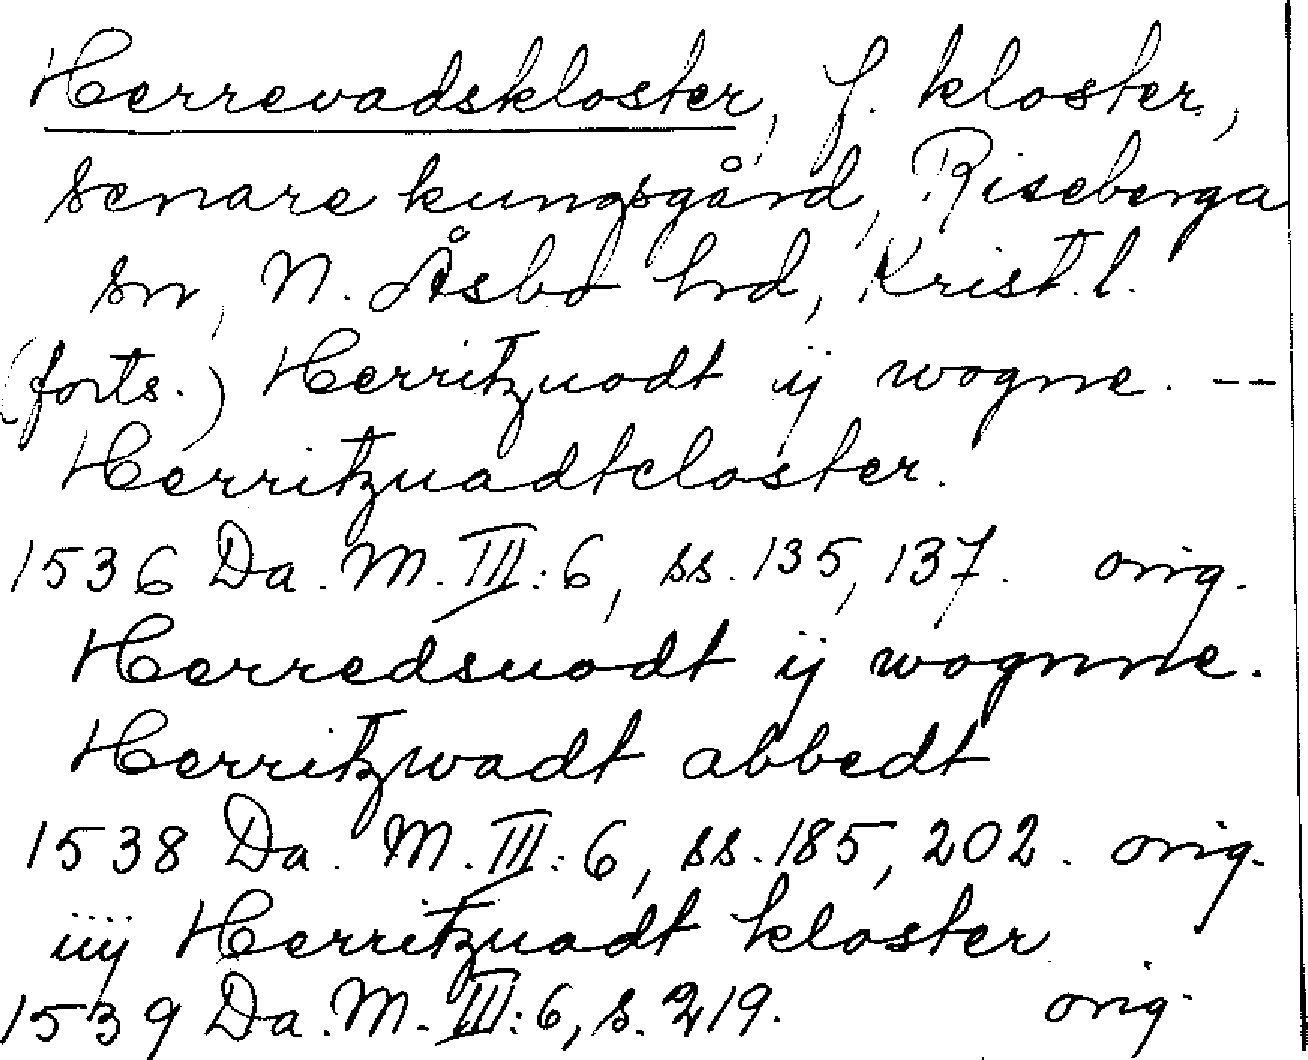 Herrevadskloster, f. kloster,
senare kungsgård, Riseberga
sn, N. Åsbo hrd, Krist. l.
(forts.) Herritzuodt ij wogne. --
Herritzuadtcloster.
1536 Da. M. III:6, ss. 135, 137. orig.
Herredsuodt ij wognne.
Herritzwadt abbedt
1538 Da. M. III:6, ss. 185, 202. orig.
iiij Herritzuadt kloster
1539 Da. M. III:6, s. 219. orig.